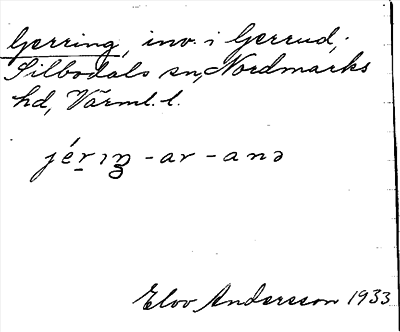 Gerring, inv. i Gerrud,
Silbodals sn, Nordmarks
hd, Värml. l.
jérıŋ -ar -anə
Elov Andersson 1933